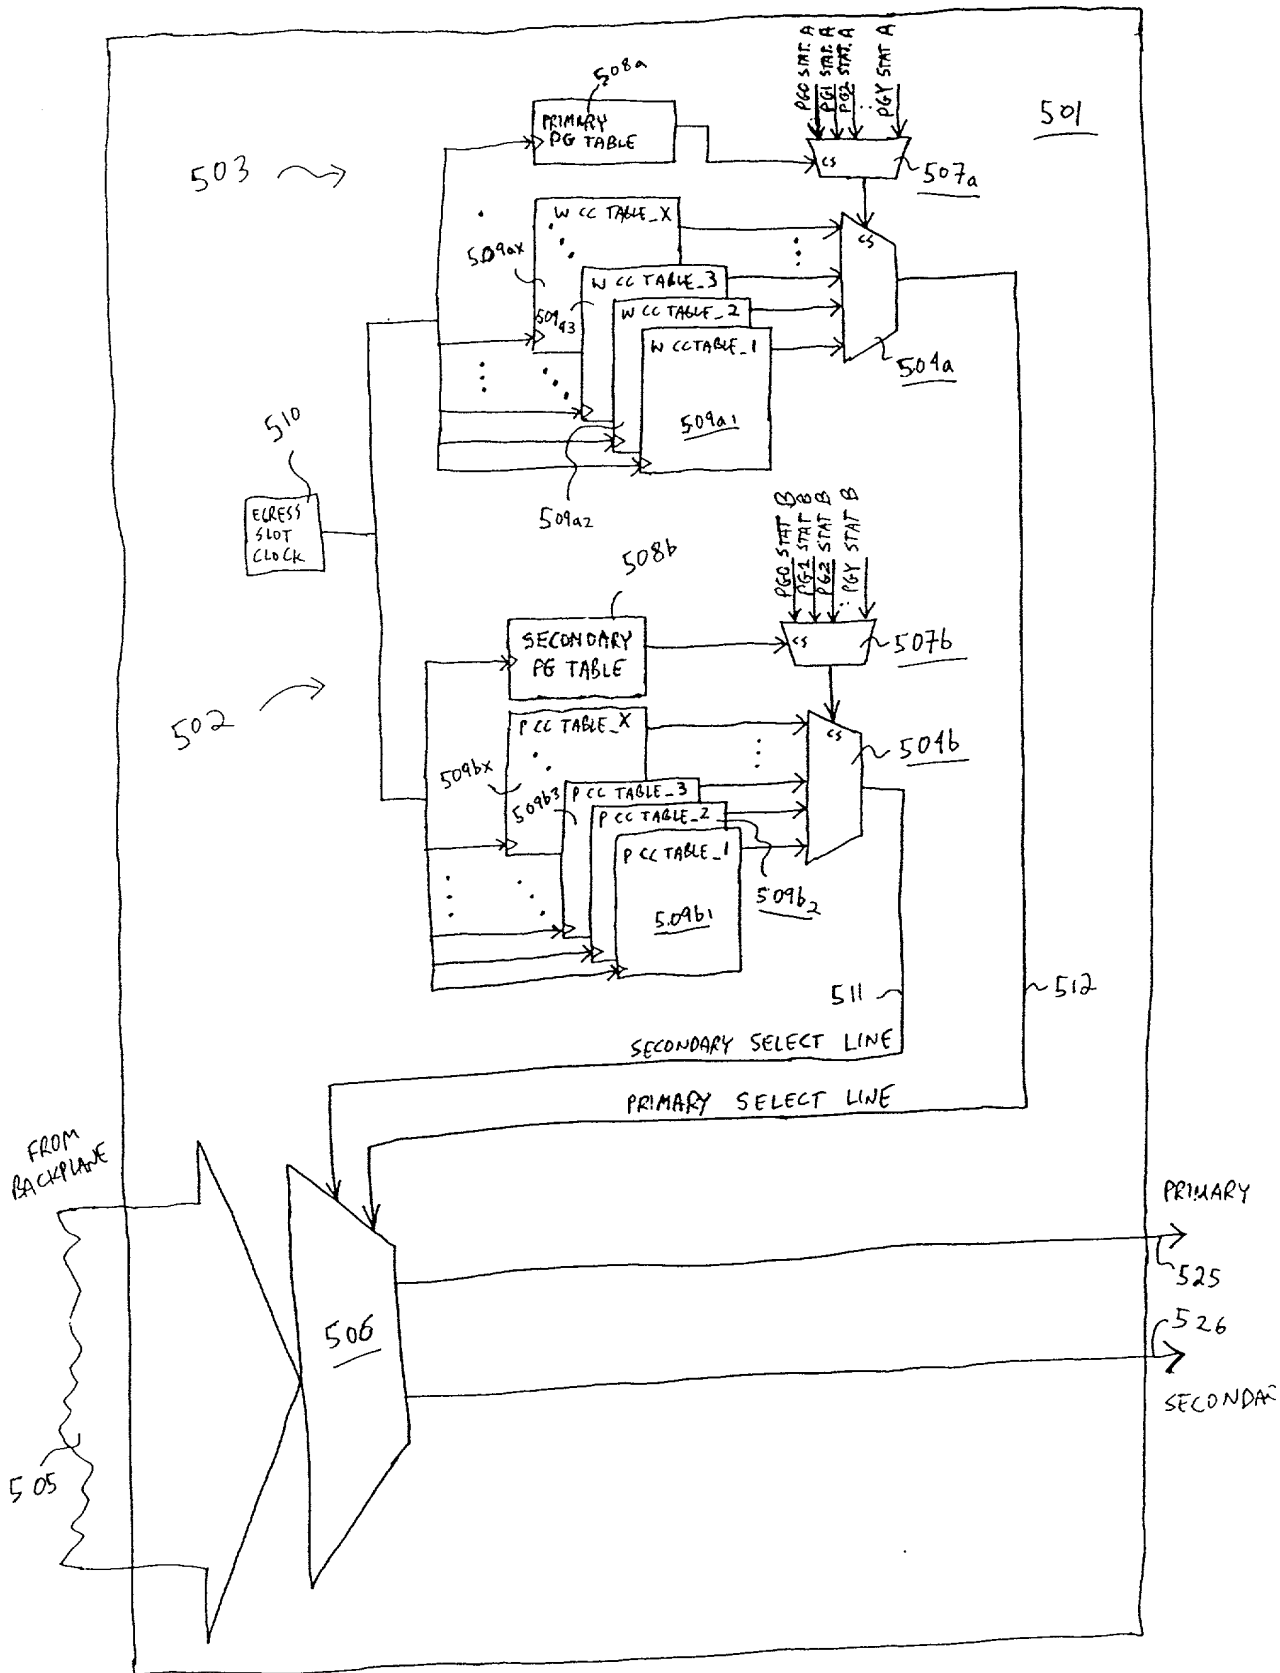 PG0 STAT. A
PG1 STAT. A
PG2 STAT. A
PGY STAT A
508a
501
PRIMARY
PG TABLE
CS
507a
503
W CC TABLE_X
CS
509ax
W CC TABLE_3
509a3
W CC TABLE_2
W CC TABLE_1
504a
509a1
510
509a2
EGRESS
SLOT
CLOCK
PG0 STAT B
PG1 STAT B
PG2 STAT B
PGY STAT B
508b
SECONDARY
PG TABLE
CS
507b
502
P CC TABLE_X
CS
504b
509bx
509b3
P CC TABLE_3
P CC TABLE_2
P CC TABLE_1
509b2
509b1
511
512
SECONDARY SELECT LINE
PRIMARY SELECT LINE
FROM
BACKPLANE
PRIMARY
525
506
526
SECONDAR
505